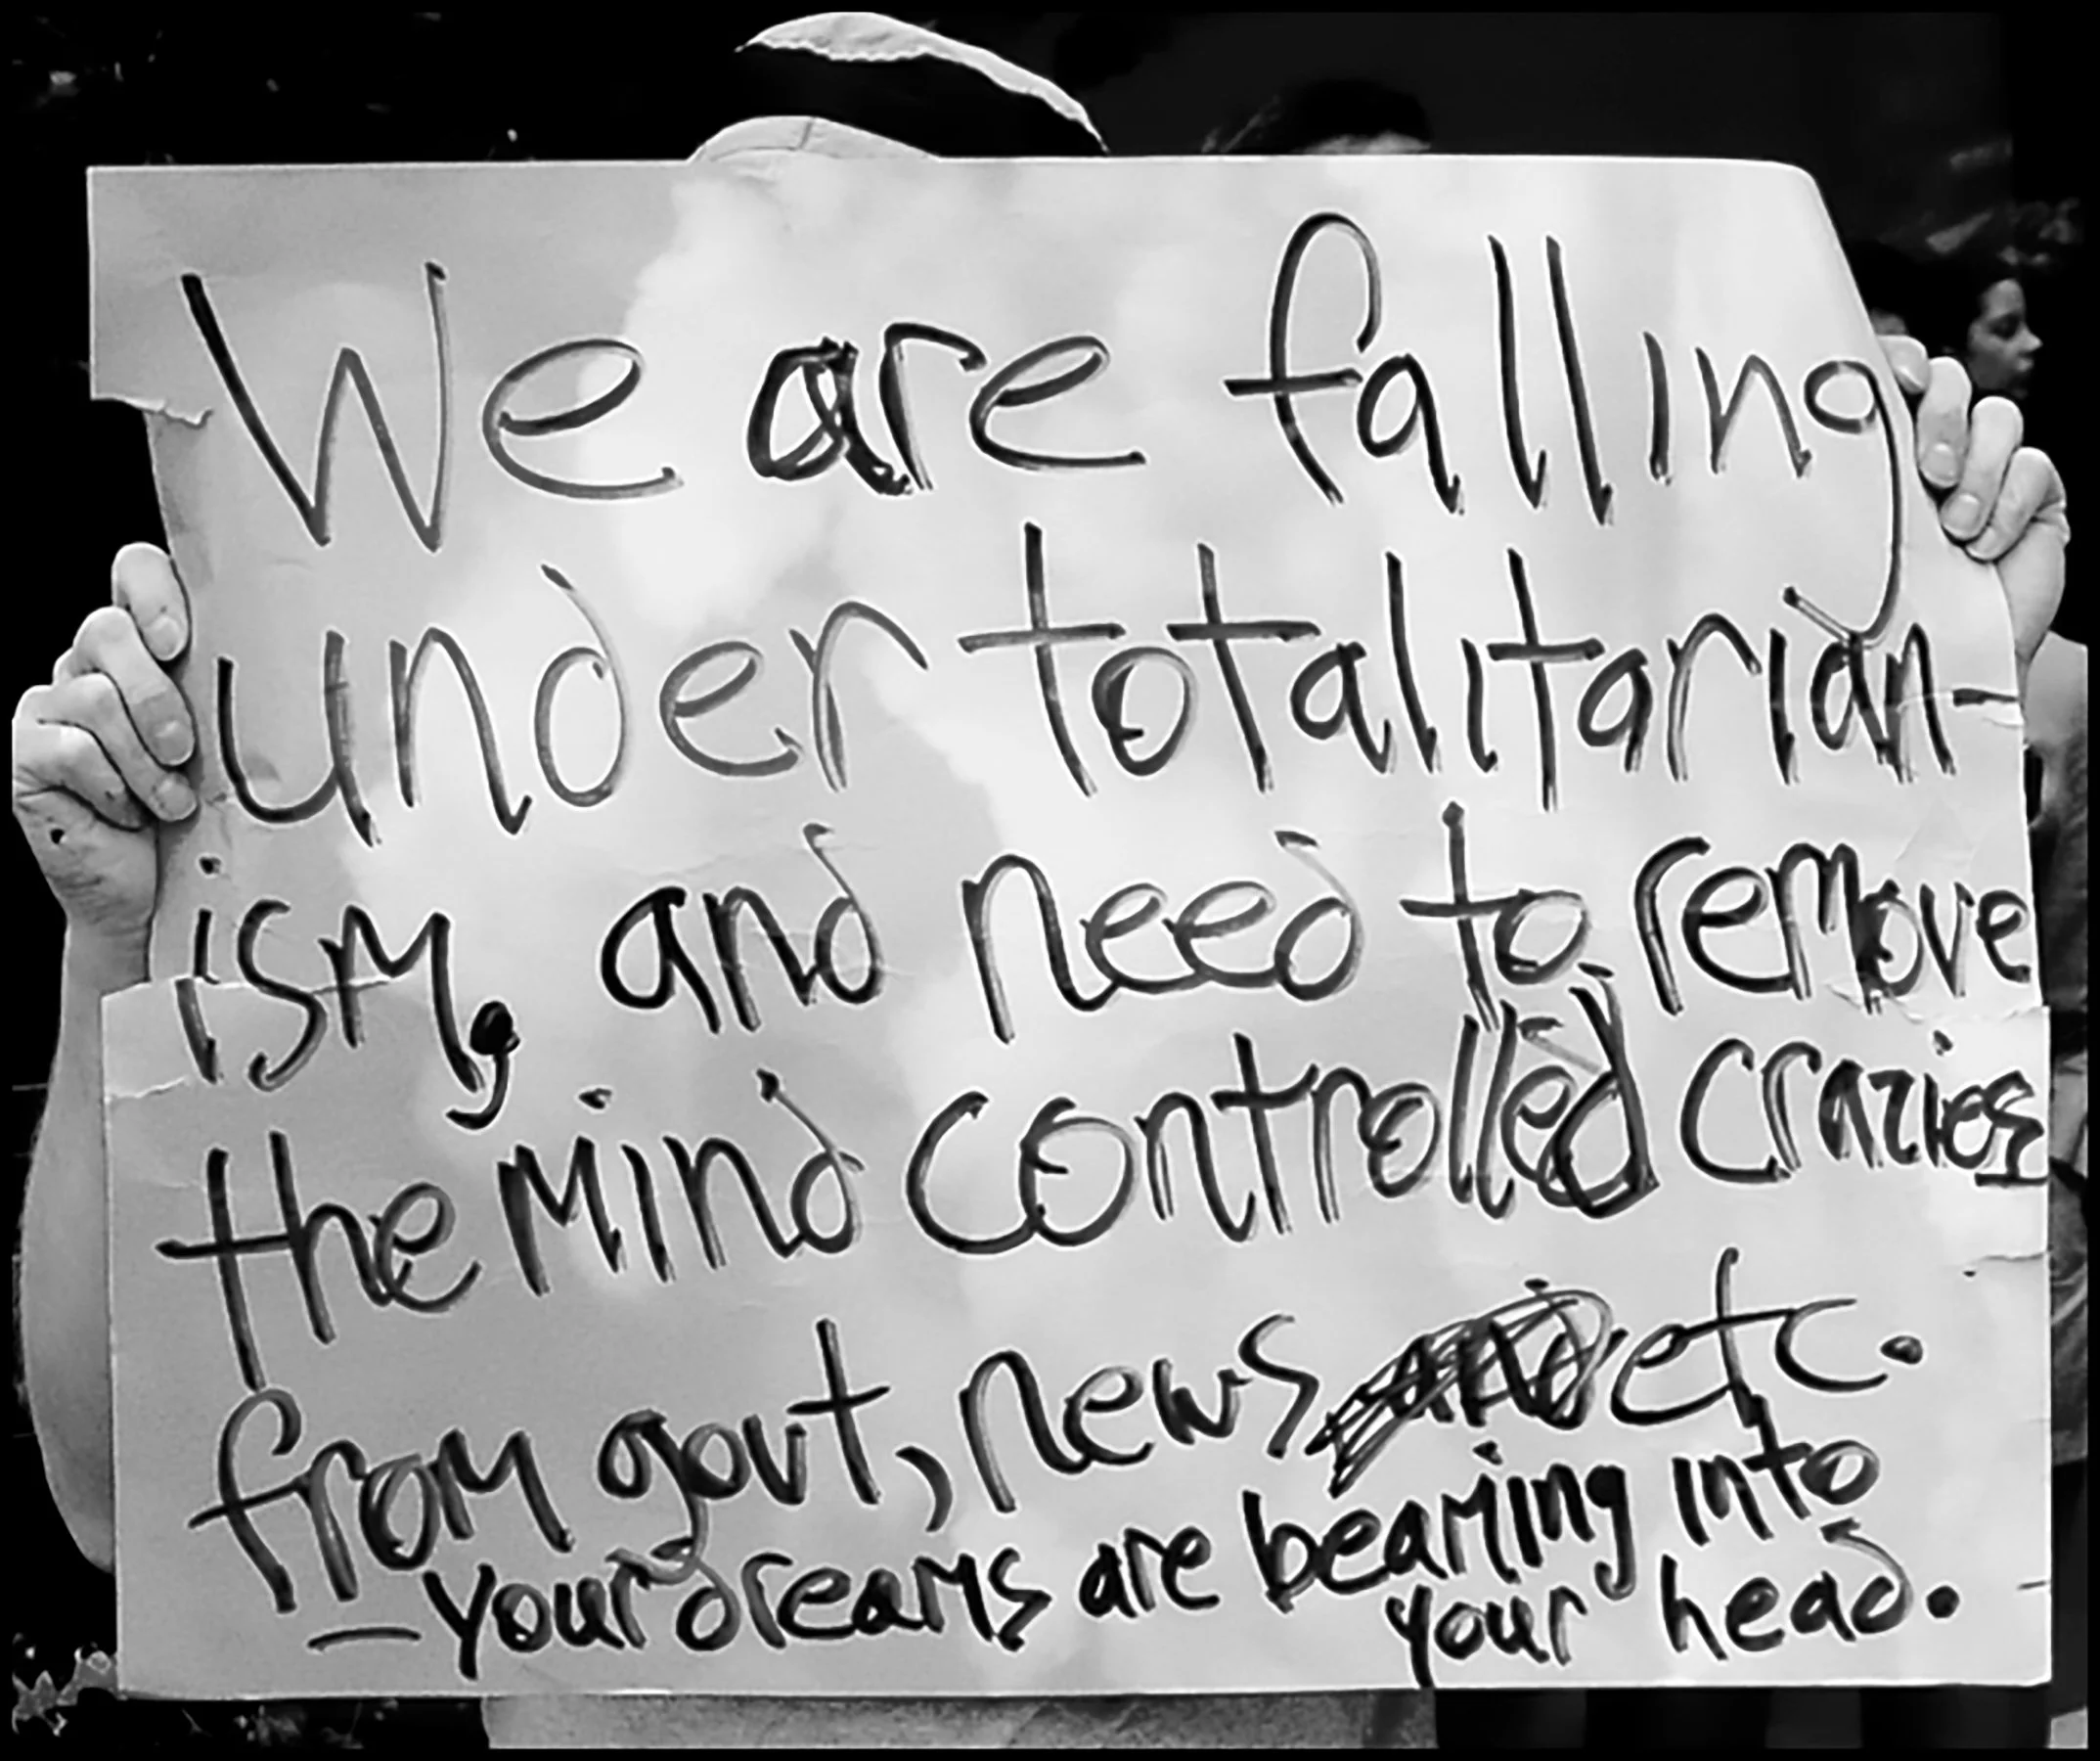 We are falling
under totalitarian-
ism, and need to remove
the mind controlled crazies
from govt, news etc.
- your dreams are beaming into
your head.